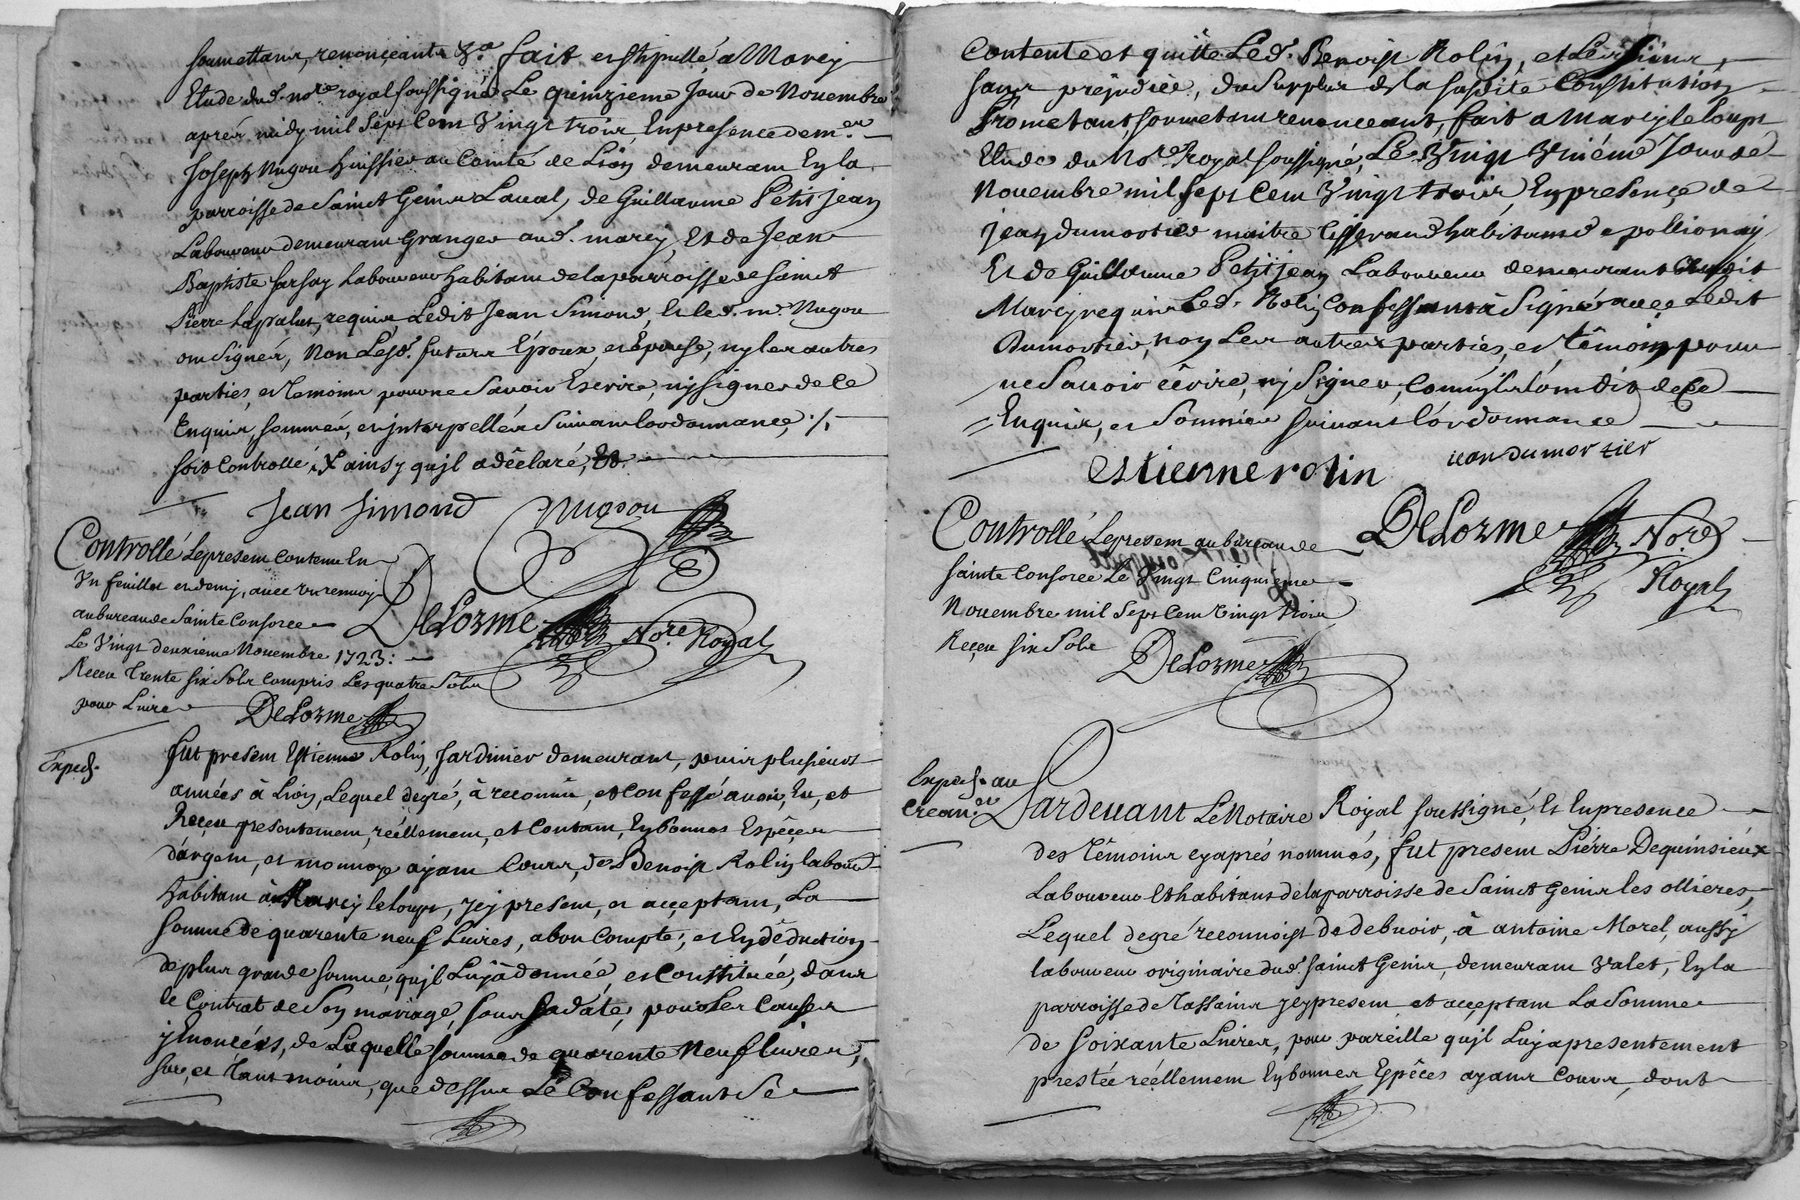 soumettans, renonçeants &.a fait et stipullé a Marcy
Etude dud. no.re royal soussigné Le quinzieme Jour de Novembre
aprés midy mil Sept Cent Vingt trois, En presence de m.e
Joseph Nugou huissier au Comté de Lion demeurant En la
parroisse de Saint Genis Laval, de Guillaume Petit Jean
Laboureur demeurant Granger aud. marcy, Et de Jean
Baptiste sarsay Laboureur habitant de la parroisse de Saint
Pierre Lapalud, requis, Ledit Jean Simond, Et led. m.e Nugou
ont signés, Non Lesd. futurs Époux, et Épouse, ny les autres
parties, et temoins pour ne Savoir Escrire, ny signer de Ce
Enquis, sommés, et interpellés Suivant lordonnance ./.
soit Controllé, X ainsy quil a déclaré, Et.
Jean Simond Nugou
Controllé Le present contenu En
Un feuillet et demy, avec un renvoy
au bureau de Sainte Consorce
Le Vingt deuxieme Novembre 1723:
Receu Trente six Sols Compris Les quatre Sols
pour Livre DeLorme
DeLorme No.re Royal
Exped.
fut present Estienne Rolin, Jardinier demeurant, puis plusieurs
années à Lion, Lequel de gré, à reconnu, et Confessé avoir, Eu, et
Receu presentement, réellement, et Contant, En bonnes Espêces
d'argent, et monnoye ayant Cours, de Benoist Rolin labour.
habitant à Marcy le loups, Icy present, et acceptant, La
Somme de quarente neuf Livres, a bon Compte, et En déduction
de plus grande Somme, quil Luy à donnée, et Constituée, dans
le Contrat de Son mariage, sous sa date, pour les Causes
y Enoncées, de Laquelle somme de quarente Neuf livres,
sur, et Tant moins, que dessus Lé Confessant Se
Contente et quitte Led. Benoist Rolin, et Les siens,
sans préjudice, du Surplus de la susdite Constitution
Prometant, soumetant renonceant, fait a Marcy le loups
Etude du No.re Royal soussigné, Le Vingt Uniéme Jour de
Novembre mil Sept Cent Vingt trois, En presence de
jean dumortier maitre Tisserand habitant de pollionay
Et de Guillaume Petit jean Laboureur demeurant audit
Marcy requis Led. Rolin Confessant à Signé avec Ledit
Dumortier, non Les autres parties, et témoin pour
ne Savoir écrire, ny Signer, Comm'ils l'ont dit de Ce
Enquis, et Sommés suivant l'ordonnance
estienne rolin jean dumortier
Controllé Le present au bureau de
Sainte Consorce Le Vingt Cinquieme
Novembre mil Sept Cent Vingt trois
Receu six Sols
DeLorme
DeLorme No.re
Royal
Exped. au
Crean.er
Pardevant Le Notaire Royal soussigné, Et En presence
des Témoins cy aprés nommés, fut present Pierre Dequinsieux
Laboureur Et habitant de la parroisse de Saint Genis les ollieres,
Lequel de gré reconnoist de debvoir, à antoine Morel, aussy
laboureur originaire dud. saint Genis, demeurant Valet, En la
parroisse de Tassins Icy present et acceptant La Somme
de soixante Livres, pour pareille quil Luy a presentement
prestée réellement En bonnes Espêces ayant Cours, dont